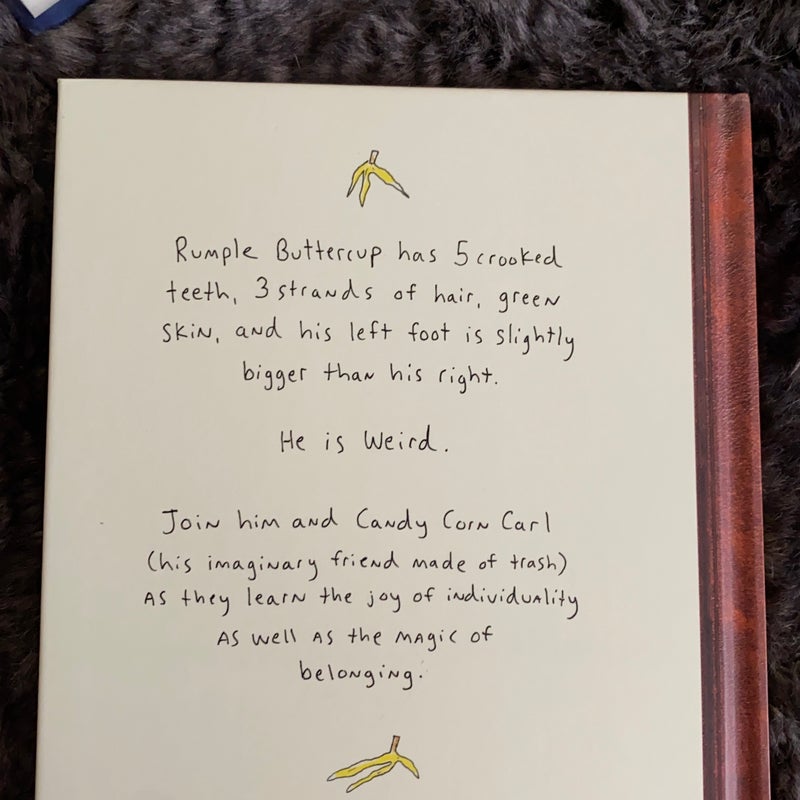 Rumple Buttercup has 5 crooked
teeth, 3 strands of hair, green
skin, and his left foot is slightly
bigger than his right.
He is Weird.
Join him and Candy Corn Carl
(his imaginary friend made of trash)
as they learn the joy of individuality
as well as the magic of
belonging.